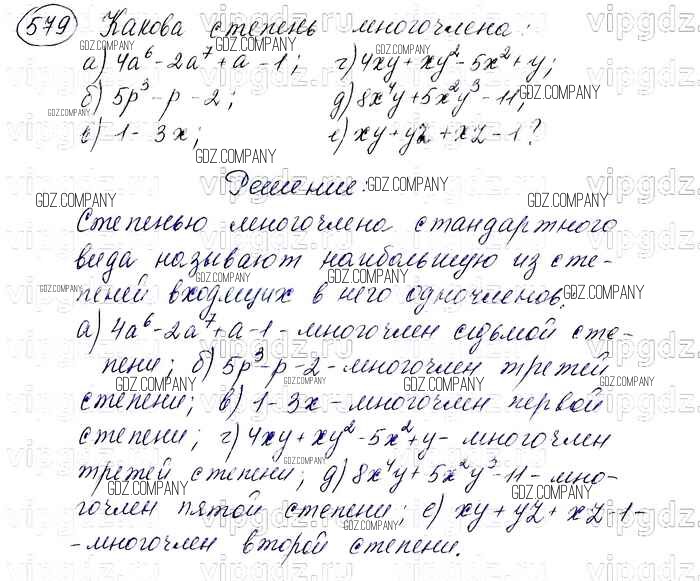 579 Какова степень многочлена:
а) 4a⁶ - 2a⁷ + a - 1; г) 4xy + xy² - 5x² + y;
б) 5p³ - p - 2; д) 8x⁴y + 5x²y³ - 11;
в) 1 - 3x; е) xy + yz + xz - 1?
Решение:
Степенью многочлена стандартного
вида называют наибольшую из сте-
пеней входящих в него одночленов.
а) 4a⁶ - 2a⁷ + a - 1 - многочлен седьмой сте-
пени; б) 5p³ - p - 2 - многочлен третей
степени; в) 1 - 3x - многочлен первой
степени; г) 4xy + xy² - 5x² + y - многочлен
третей степени; д) 8x⁴y + 5x²y³ - 11 - мно-
гочлен пятой степени; е) xy + yz + xz - 1 -
- многочлен второй степени.